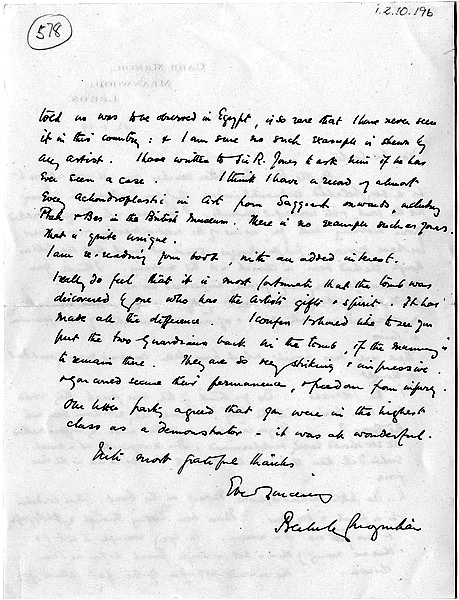 i.2.10.196
578
told us was to be observed in Egypt, is so rare that I have never seen
it in this country: & I am sure no such example is shewn by
any artist. I have written to Sir R. Jones to ask him if he has
Ever seen a case. I think I have a record of almost
Every achondroplastic in Art from Saqqarah onwards, including
Ptah & Bes in the British Museum. There is no example such as yours.
That is quite unique.
I am re-reading your book, with an added interest.
I really do feel that it is most fortunate that the tomb was
discovered by one who has the artist's gifts & spirit. It has
made all the difference. I confess I should like to see you
put the two Guardians back in the tomb, if the mummy is
to remain there. They are so very striking & impressive.
& you could secure their permanence, & freedom from injury.
Our little party agreed that you were in the highest
class as a demonstrator - it was all wonderful.
With most grateful thanks
Ever sincerely
Berkeley Moynihan